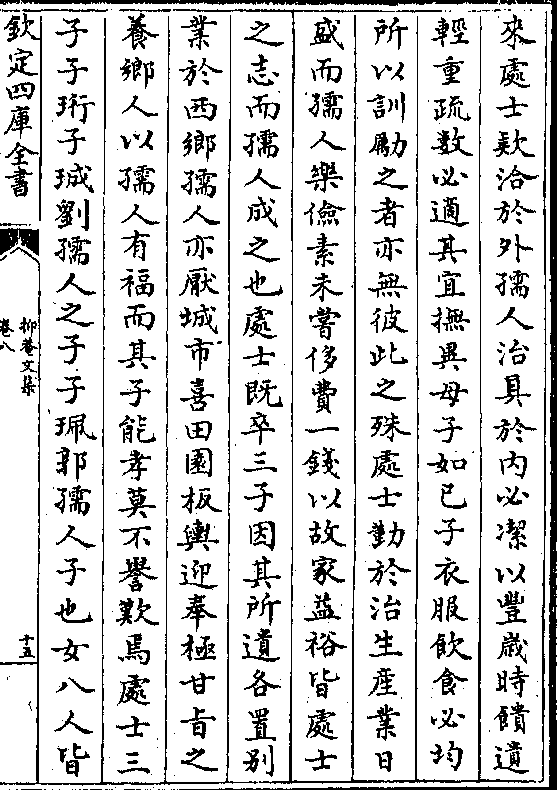 來處士欵洽於外孺人治具於内必潔以豐歲時饋遺
輕重疏數必適其宜撫異母子如已子衣服飲食必均
所以訓勵之者亦無彼此之殊處士勤於治生産業日
盛而孺人樂儉素未嘗侈費一錢以故家益裕皆處士
之志而孺人成之也處士既卒三子因其所遺各置别
業於西鄉孺人亦厭城市喜田園板輿迎奉極甘旨之
養鄉人以孺人有福而其子能孝莫不譽歎焉處士三
子子珩子珹劉孺人之子子珮郭孺人子也女八人皆
欽定四庫全書
抑菴文集
卷八
十五